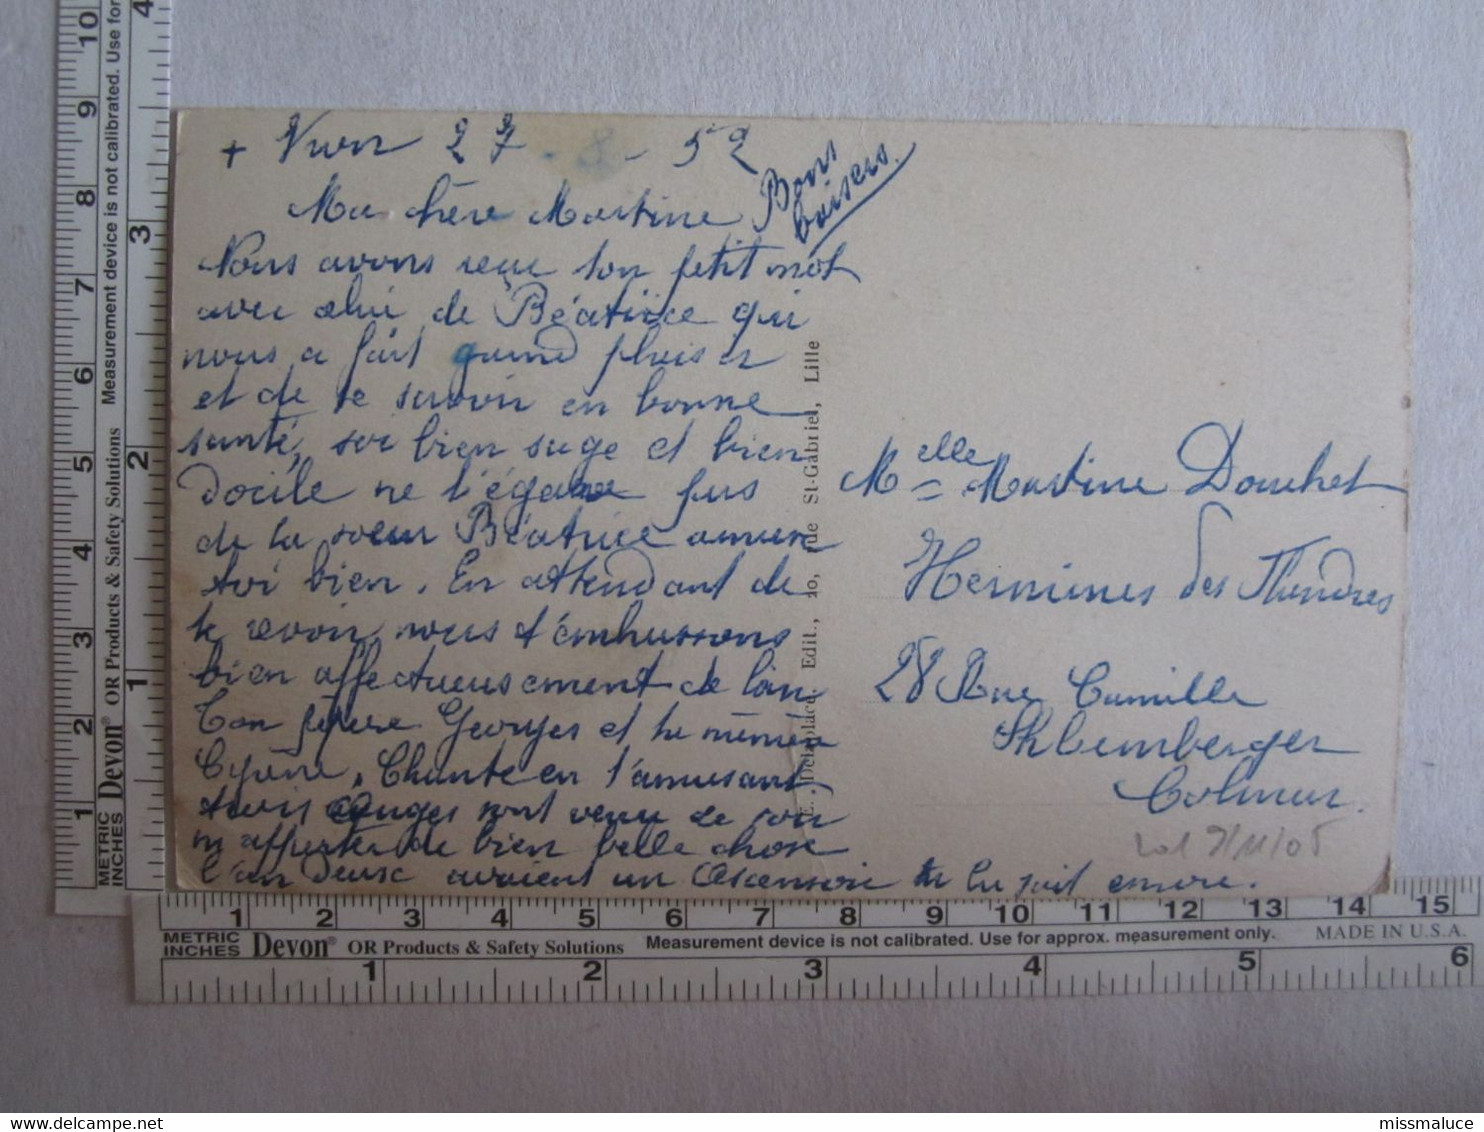 + Vwon 27 - 8 - 52
Bons
baisers.
Ma chère Martine
Nous avons reçu ton petit mot
avec celui de Béatrice qui
nous a fait grand plaisir
et de te savoir en bonne
santé, soi bien sage et bien
docile ne t'égare pas
de ta soeur Béatrice amuse
toi bien. En attendant de
te revoir nous t'embrassons
bien affectueusement de loin
Ton pépère Georges et ta mémère
Chante en t'amusant
trois Anges sont venu ce soir
m apporter de bien belle chose
l'un Deux avaient un Ascensoir
E. Delaplace Edit., 10, rue St-Gabriel, Lille
Melle Martine Douchet
Hermines des Flandres
28 Rue Camille
Schlumberger
Colmar.
METRIC
INCHES
Devon® OR Products & Safety Solutions
Measurement device is not calibrated. Use for
1 2 3 4 5 6 7 8 9 10
1 2 3 4
1 2 3 4 5 6 7 8 9 10 11 12 13 14 15
METRIC
INCHES
Devon® OR Products & Safety Solutions Measurement device is not calibrated. Use for approx. measurement only. MADE IN U.S.A.
1 2 3 4 5 6
missmaluce